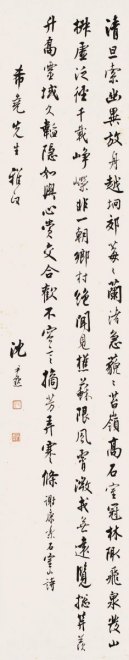 清旦索幽異放舟越坰郊莓〻蘭渚急藐〻苔嶺高石室冠林陬飛泉發山
椒虛泛徑千載崢嶸非一朝鄉村絕聞見樵蘇限風霄微我無遠覽總笄羨
升喬靈域久韜隱如與心賞交合歡不容言摘芳弄寒條 謝康樂石室山詩
希堯先生雅正
沈尹默